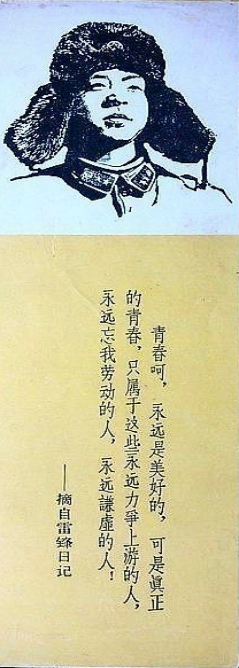 青春呵，永远是美好的，可是真正
的青春，只属于这些永远力争上游的人，
永远忘我劳动的人，永远謙虛的人！
——摘自雷锋日记